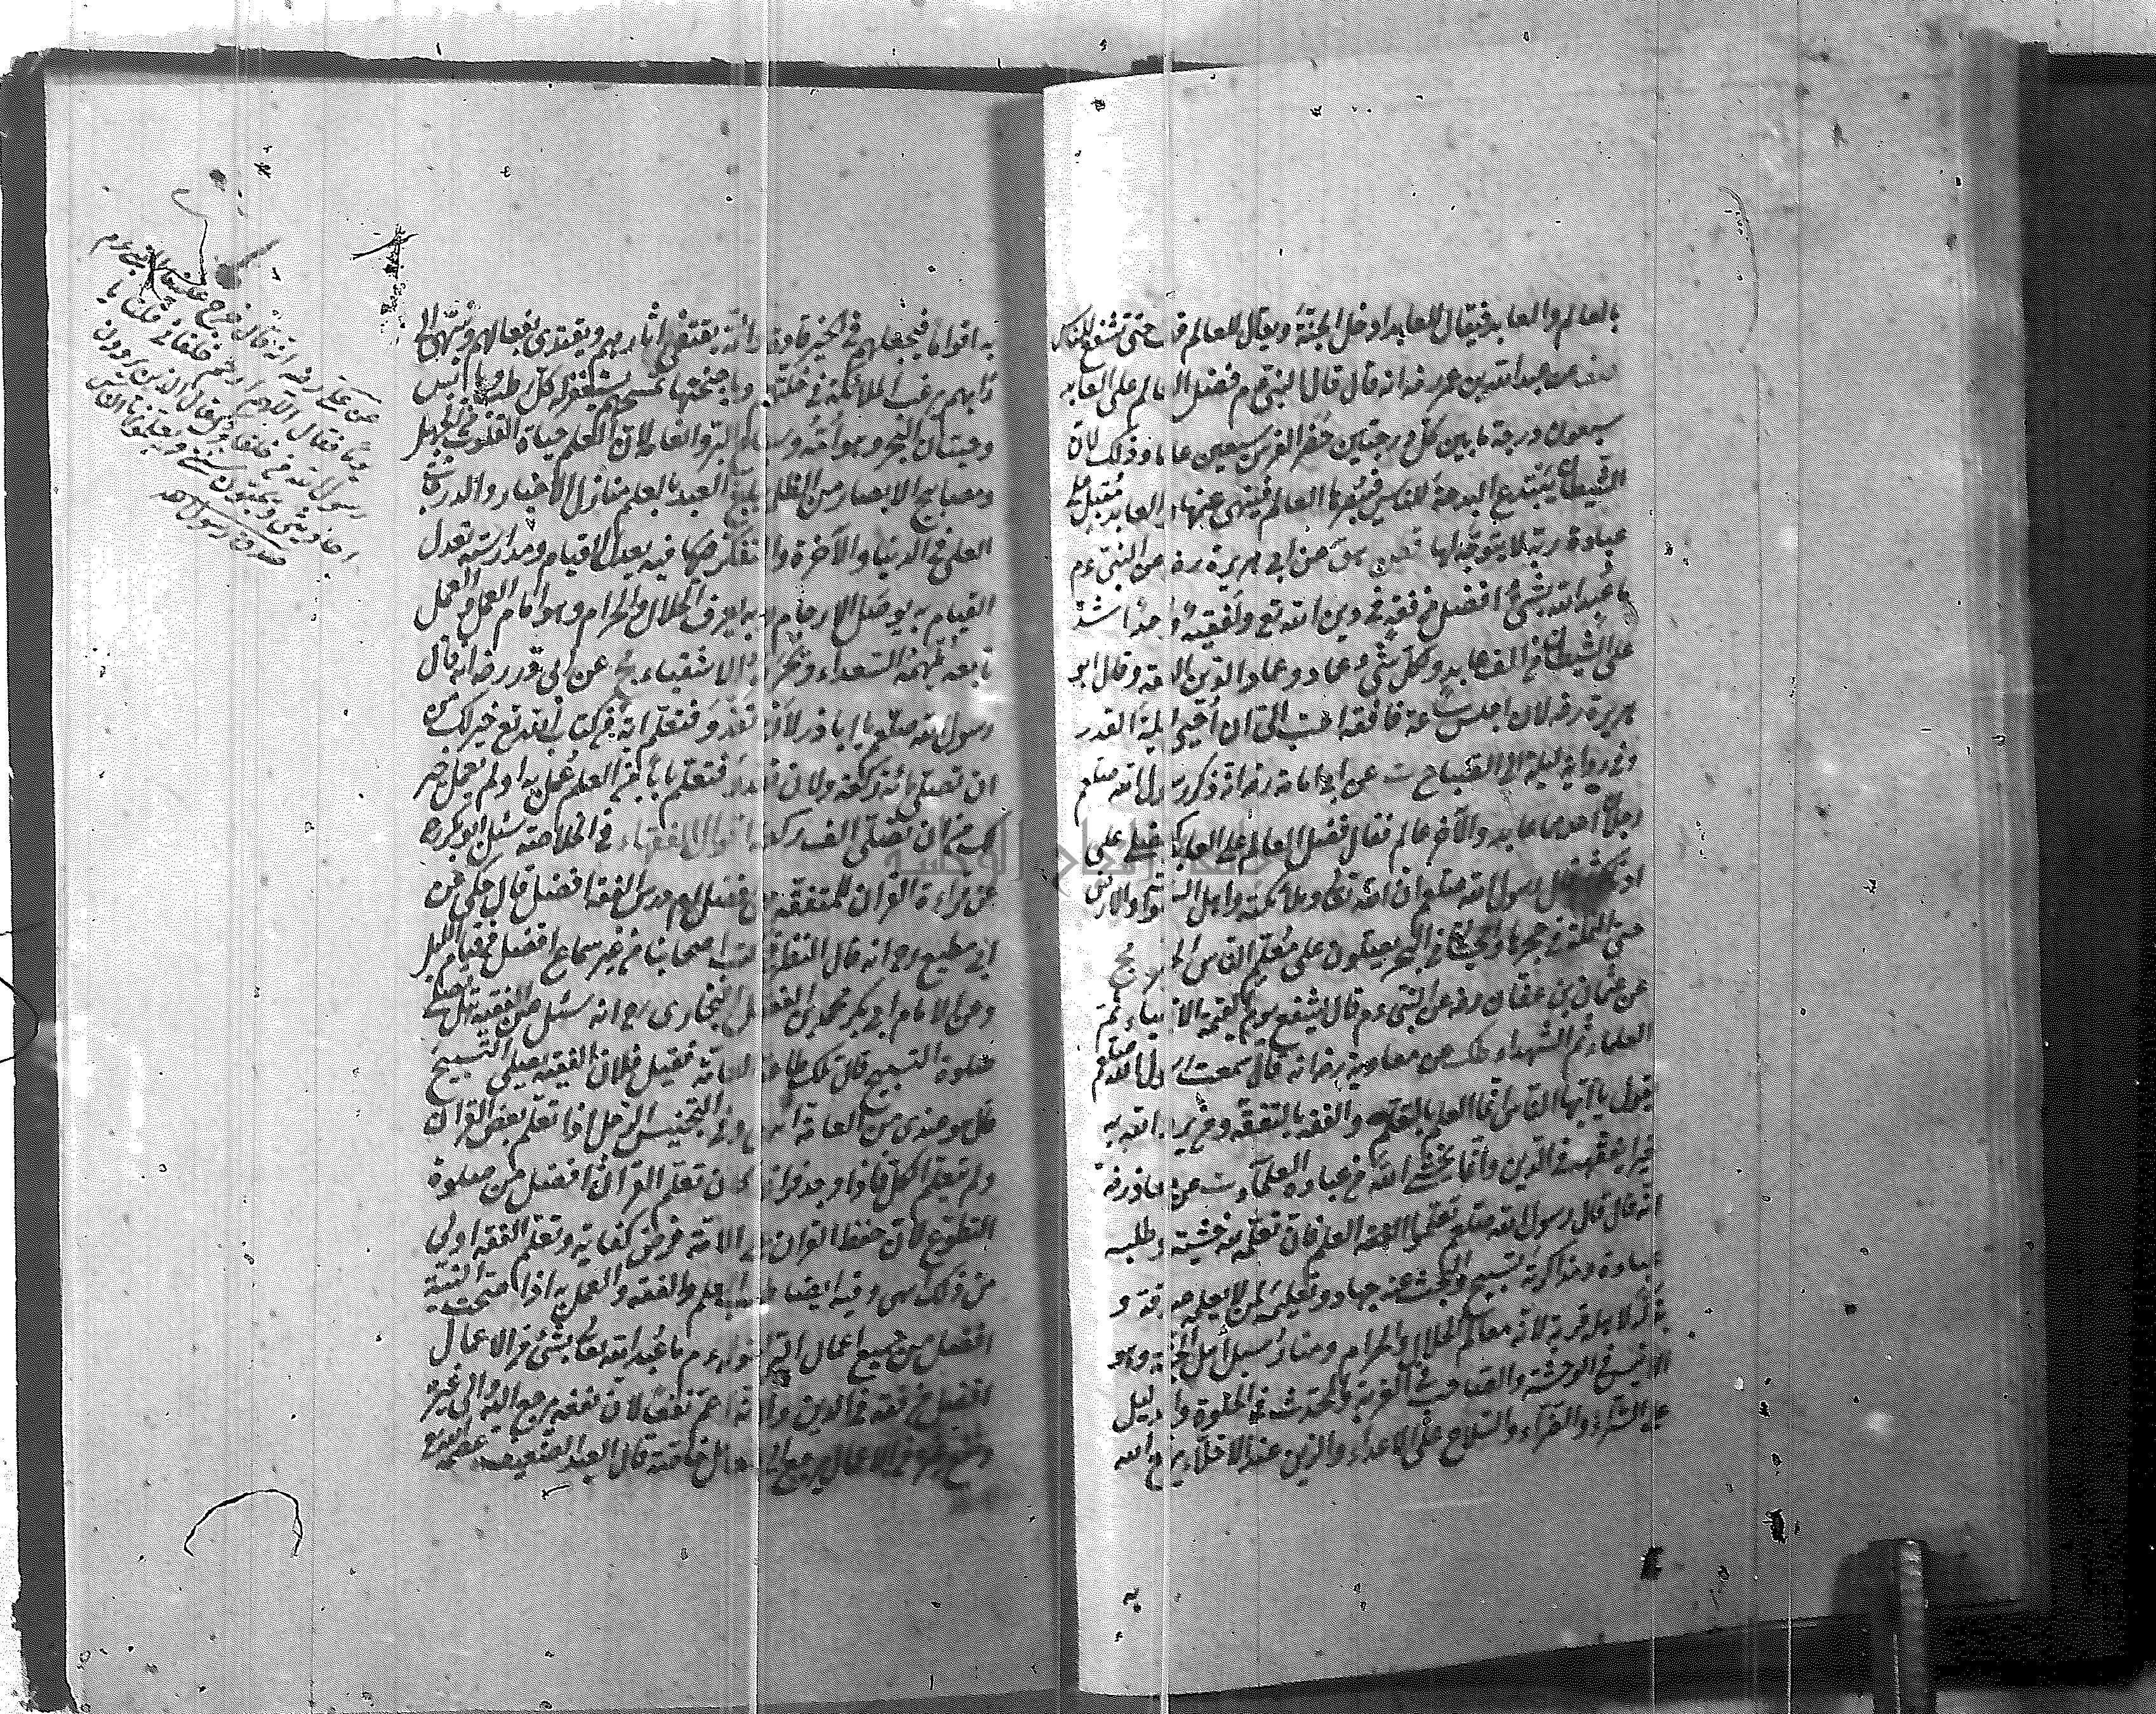 بالعالم والعابد فيقال للعابد ادخل الجنة ويقال للعالم قف حتى تشفع للناس
عن عبد الله بن عمر رضه انه قال قال النبي عم فضل العالم على العابد
سبعون درجة ما بين كل درجتين حضر الفرس سبعين عاما وذلك لان
الشيطان يبتدع البدعة للناس فيبصرها العالم فينهى عنها والعابد مقبل على
عبادة ربه لا يتوجه لها عن ابى هريرة رضه عن النبي عم
ما عبد الله بشئ افضل من فقه في دين الله تع ولفقيه واحد اشد
على الشيطان من الف عابد ولكل شئ عماد وعماد الدين الفقه وقال ابو
هريرة رضه لان اجلس ساعة فافقه احب الى ان احيى ليلة القدر
وفي رواية ليلة الى الصباح ت عن ابى امامة رضه انه ذكر رسول الله صلعم
رجلان احدهما عابد والآخر عالم فقال فضل العالم على العابد كفضلى على
ادنيكم فقال رسول الله صلعم ان الله تعالى وملائكته واهل السموات والارض
حتى النملة في جحرها والحيتان في البحر يصلون على معلم الناس الخير
عن عثمان بن عفان رضه عن النبي عم قال يشفع يوم القيمة الانبياء ثم
العلماء ثم الشهداء عن معاوية رضه انه قال سمعت رسول الله صلعم
يقول يا ايها الناس انما العلم بالتعلم والفقه بالتفقه ومن يرد الله به
خيرا يفقهه في الدين وانما يخشى الله من عباده العلماء عن معاذ رضه
انه قال قال رسول الله صلعم تعلموا العلم فان تعلمه لله خشية وطلبه
عبادة ومذاكرته تسبيح والبحث عنه جهاد وتعليمه لمن لا يعلمه صدقة و
بذله لاهله قربة لانه معالم الحلال والحرام ومنار سبل اهل الجنة وهو
الانيس في الوحشة والصاحب في الغربة والمحدث في الخلوة والدليل
على السراء والضراء والسلاح على الاعداء والزين عند الاخلاء يرفع الله
به اقواما فيجعلهم في الخير قادة وائمة يقتفى اثارهم ويقتدى بفعالهم وينتهى الى
رأيهم يرغب الملائكة في خلتهم وباجنحتها تمسحهم يستغفر لهم كل رطب ويابس
وحيتان البحر وهوامه وسباع البر وانعامه لان العلم حياة القلوب من الجهل
ومصابيح الابصار من الظلم يبلغ العبد بالعلم منازل الاخيار والدرجات
العلى في الدنيا والآخرة والتفكر فيه يعدل الصيام ومدارسته تعدل
القيام به يوصل الارحام وبه يعرف الحلال والحرام وهو امام العمل والعمل
تابعه يلهمه السعداء ويحرم الاشقياء عن ابى ذر رضه انه قال
رسول الله صلعم يا ابا ذر لان تغدو فتعلم اية من كتاب الله تع خير لك من
ان تصلى مائة ركعة ولان تغدو فتعلم بابا من العلم عمل به او لم يعمل خير
لك من ان تصلى الف ركعة اقوال الفقهاء في الخلاصة سئل ابو بكر
عن قراءة القرآن للمتفقه هى افضل ام درس الفقه افضل قال حكى عن
ابى مطيع رح انه قال النظر في كتب اصحابنا من غير سماع افضل من قيام الليل
وعن الامام ابى بكر محمد بن الفضل البخارى رح انه سئل عن الفقيه هل يصلى
صلوة التسبيح قال تلك طاعة العامة فقيل فلان الفقيه يصلى التسبيح
قال هو عندى من العامة انتهى وفي التجنيس الرجل اذا تعلم بعض القرآن
ولم يتعلم الكل فاذا وجد فراغا كان تعلم القرآن افضل من صلوة
التطوع لان حفظ القرآن على الامة فرض كفاية وتعلم الفقه اولى
من ذلك انتهى وفيه ايضا طلب العلم والفقه والعمل به اذا صحت النية
افضل من جميع اعمال البر لقوله عم ما عبد الله تعالى بشئ من الاعمال
افضل من فقه في الدين ولانه اعم نفعا لان نفعه يرجع اليه والى غيره
ونفع غيره من الاعمال يرجع الى العامل خاصة قال العبد الضعيف
عن على رضه انه قال خرج علينا النبي عم
يوما فقال اللهم ارحم خلفائى قلنا يا
رسول الله من خلفاؤك قال الذين يروون
احاديثى وسنتى ويعلمونها الناس
صدق رسول الله